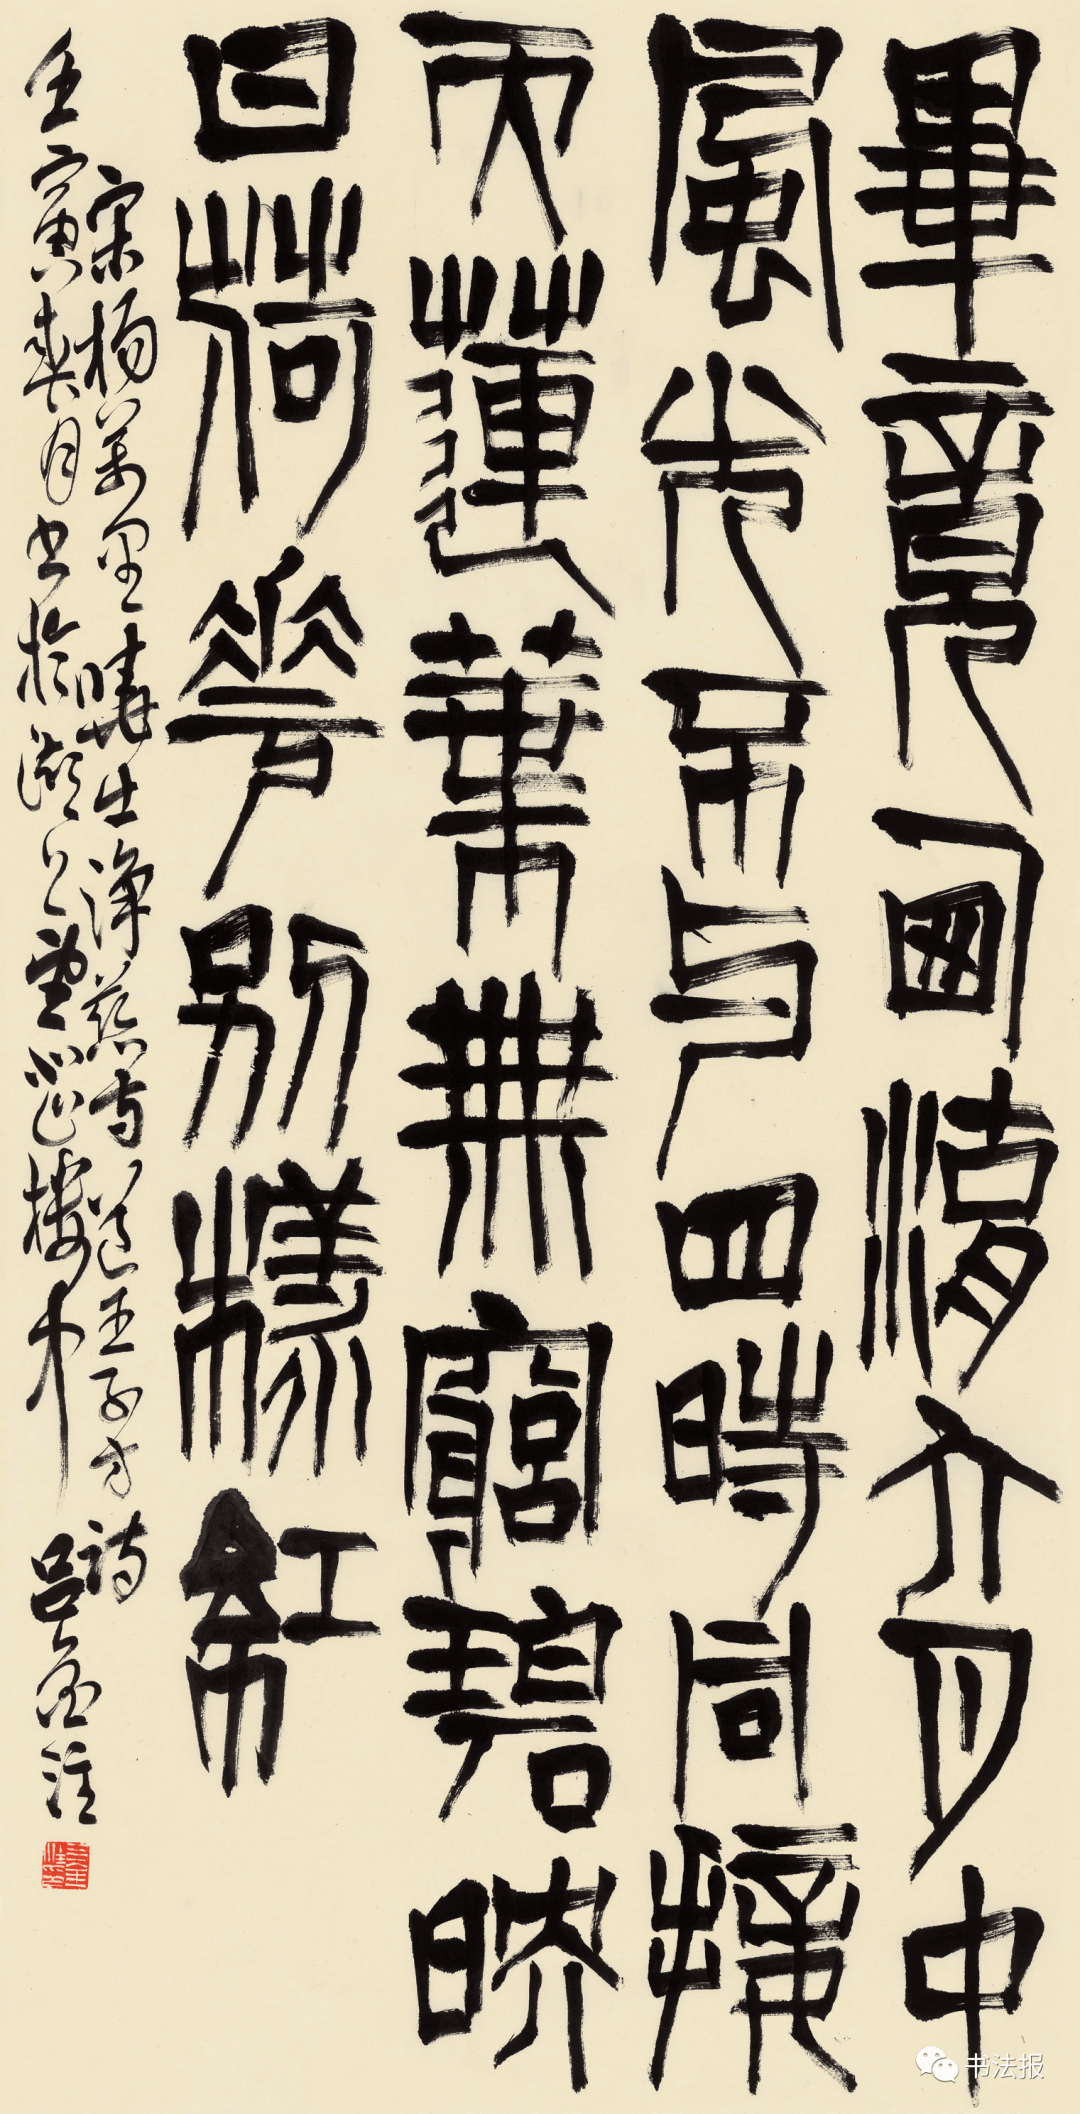 畢竟西湖六月中
風光不與四時同接
天蓮葉無窮碧映
日荷花別樣紅
宋楊萬里曉出淨慈寺送王子方詩
壬寅爽月書於樓中
书法报